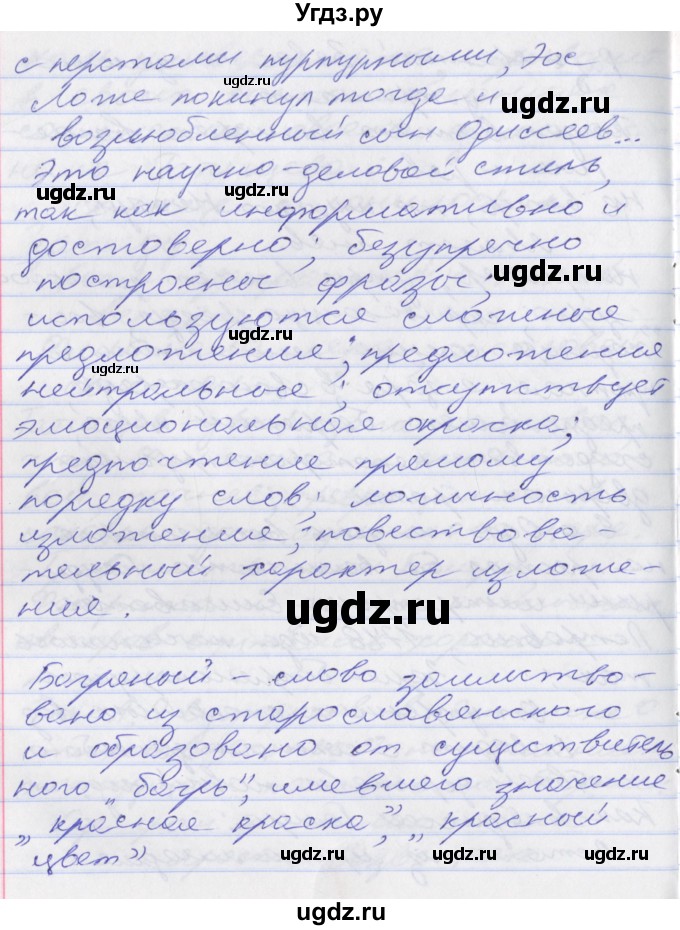 Угдз.ру
с перстами пурпурными, Эос
Ложе покинул тогда и
возлюбленный сын Одиссеев...
Это научно-деловой стиль,
так как информативно и
достоверно; безупречно
построены фразы;
используются сложные
предложения; предложения
нейтральные; отсутствует
эмоциональная окраска;
предпочтение прямому
порядку слов; логичность
изложения, повествова-
тельный характер изложе-
ния.
Багряный - слово заимство-
вано из старославянского
и образовано от существитель
ного "багрь", имевшего значение
"красная краска", "красный
цвет"
ugdz.ru
ugdz.ru
ugdz.ru
ugdz.ru
ugdz.ru
ugdz.ru
ugdz.ru
ugdz.ru
ugdz.ru
ugdz.ru
ugdz.ru